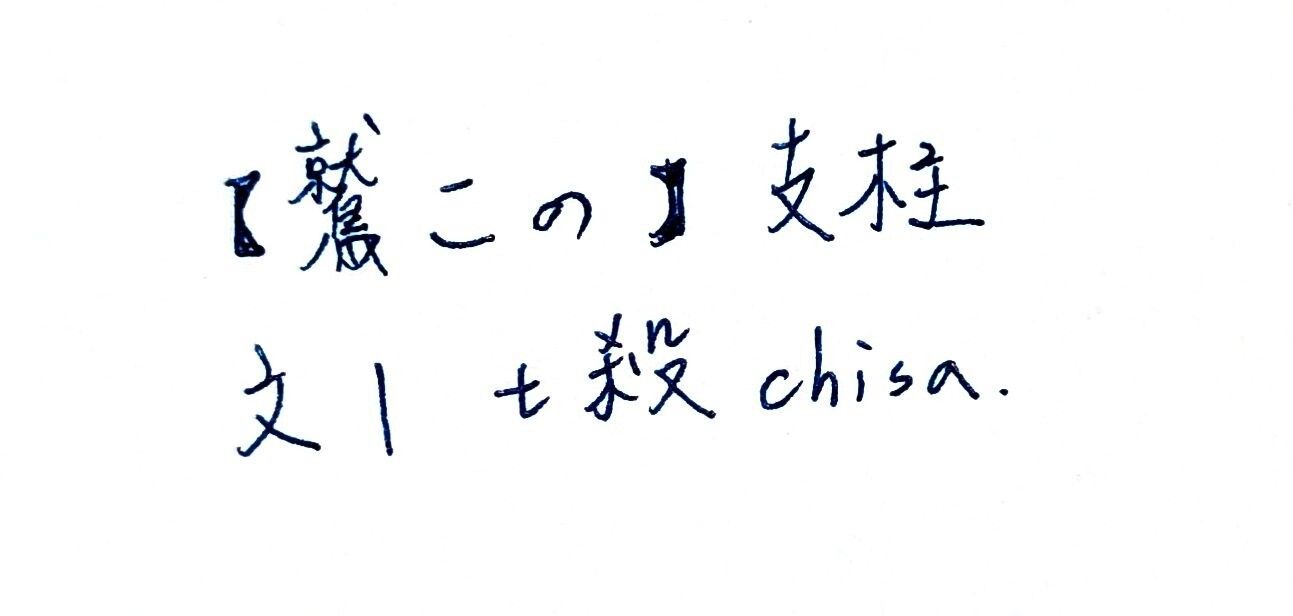 【鷲この】支柱
文| t殺 chisa.